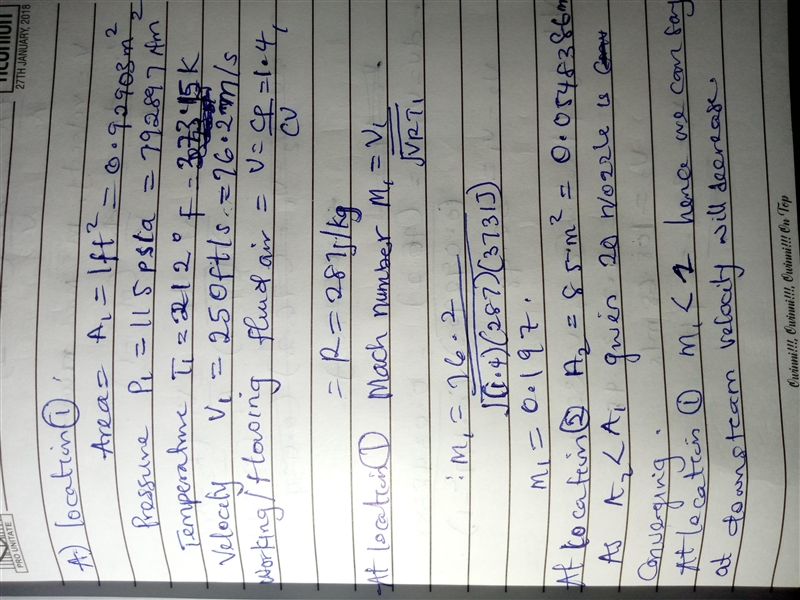 27TH JANUARY, 2018
PRO UNITATE
A) Location ①
Area = A₁ = 1ft² = 0.92903m²
Pressure P₁ = 115psia = 792897 Am²
Temperature T₁ = 212° F = 373.15K
Velocity V₁ = 250ft/s = 76.2m/s
Working/flowing fluid air = V = CP/CV = 1.4,
= R = 287J/kg
At location ① Mach number M₁ = V₁/√VRT₁
∴ M₁ = 76.2/√(1.4)(287)(3731J)
M₁ = 0.197.
At location ② A₂ = 85m² = 0.0548386m
As A₂ < A₁ given 20 nozzle is
Converging.
At location ① M₁ < 1 hence we can say
at downsteam velocity will decrease.
Owinni!!!, Owinni!!!, Owinni!!! On Top